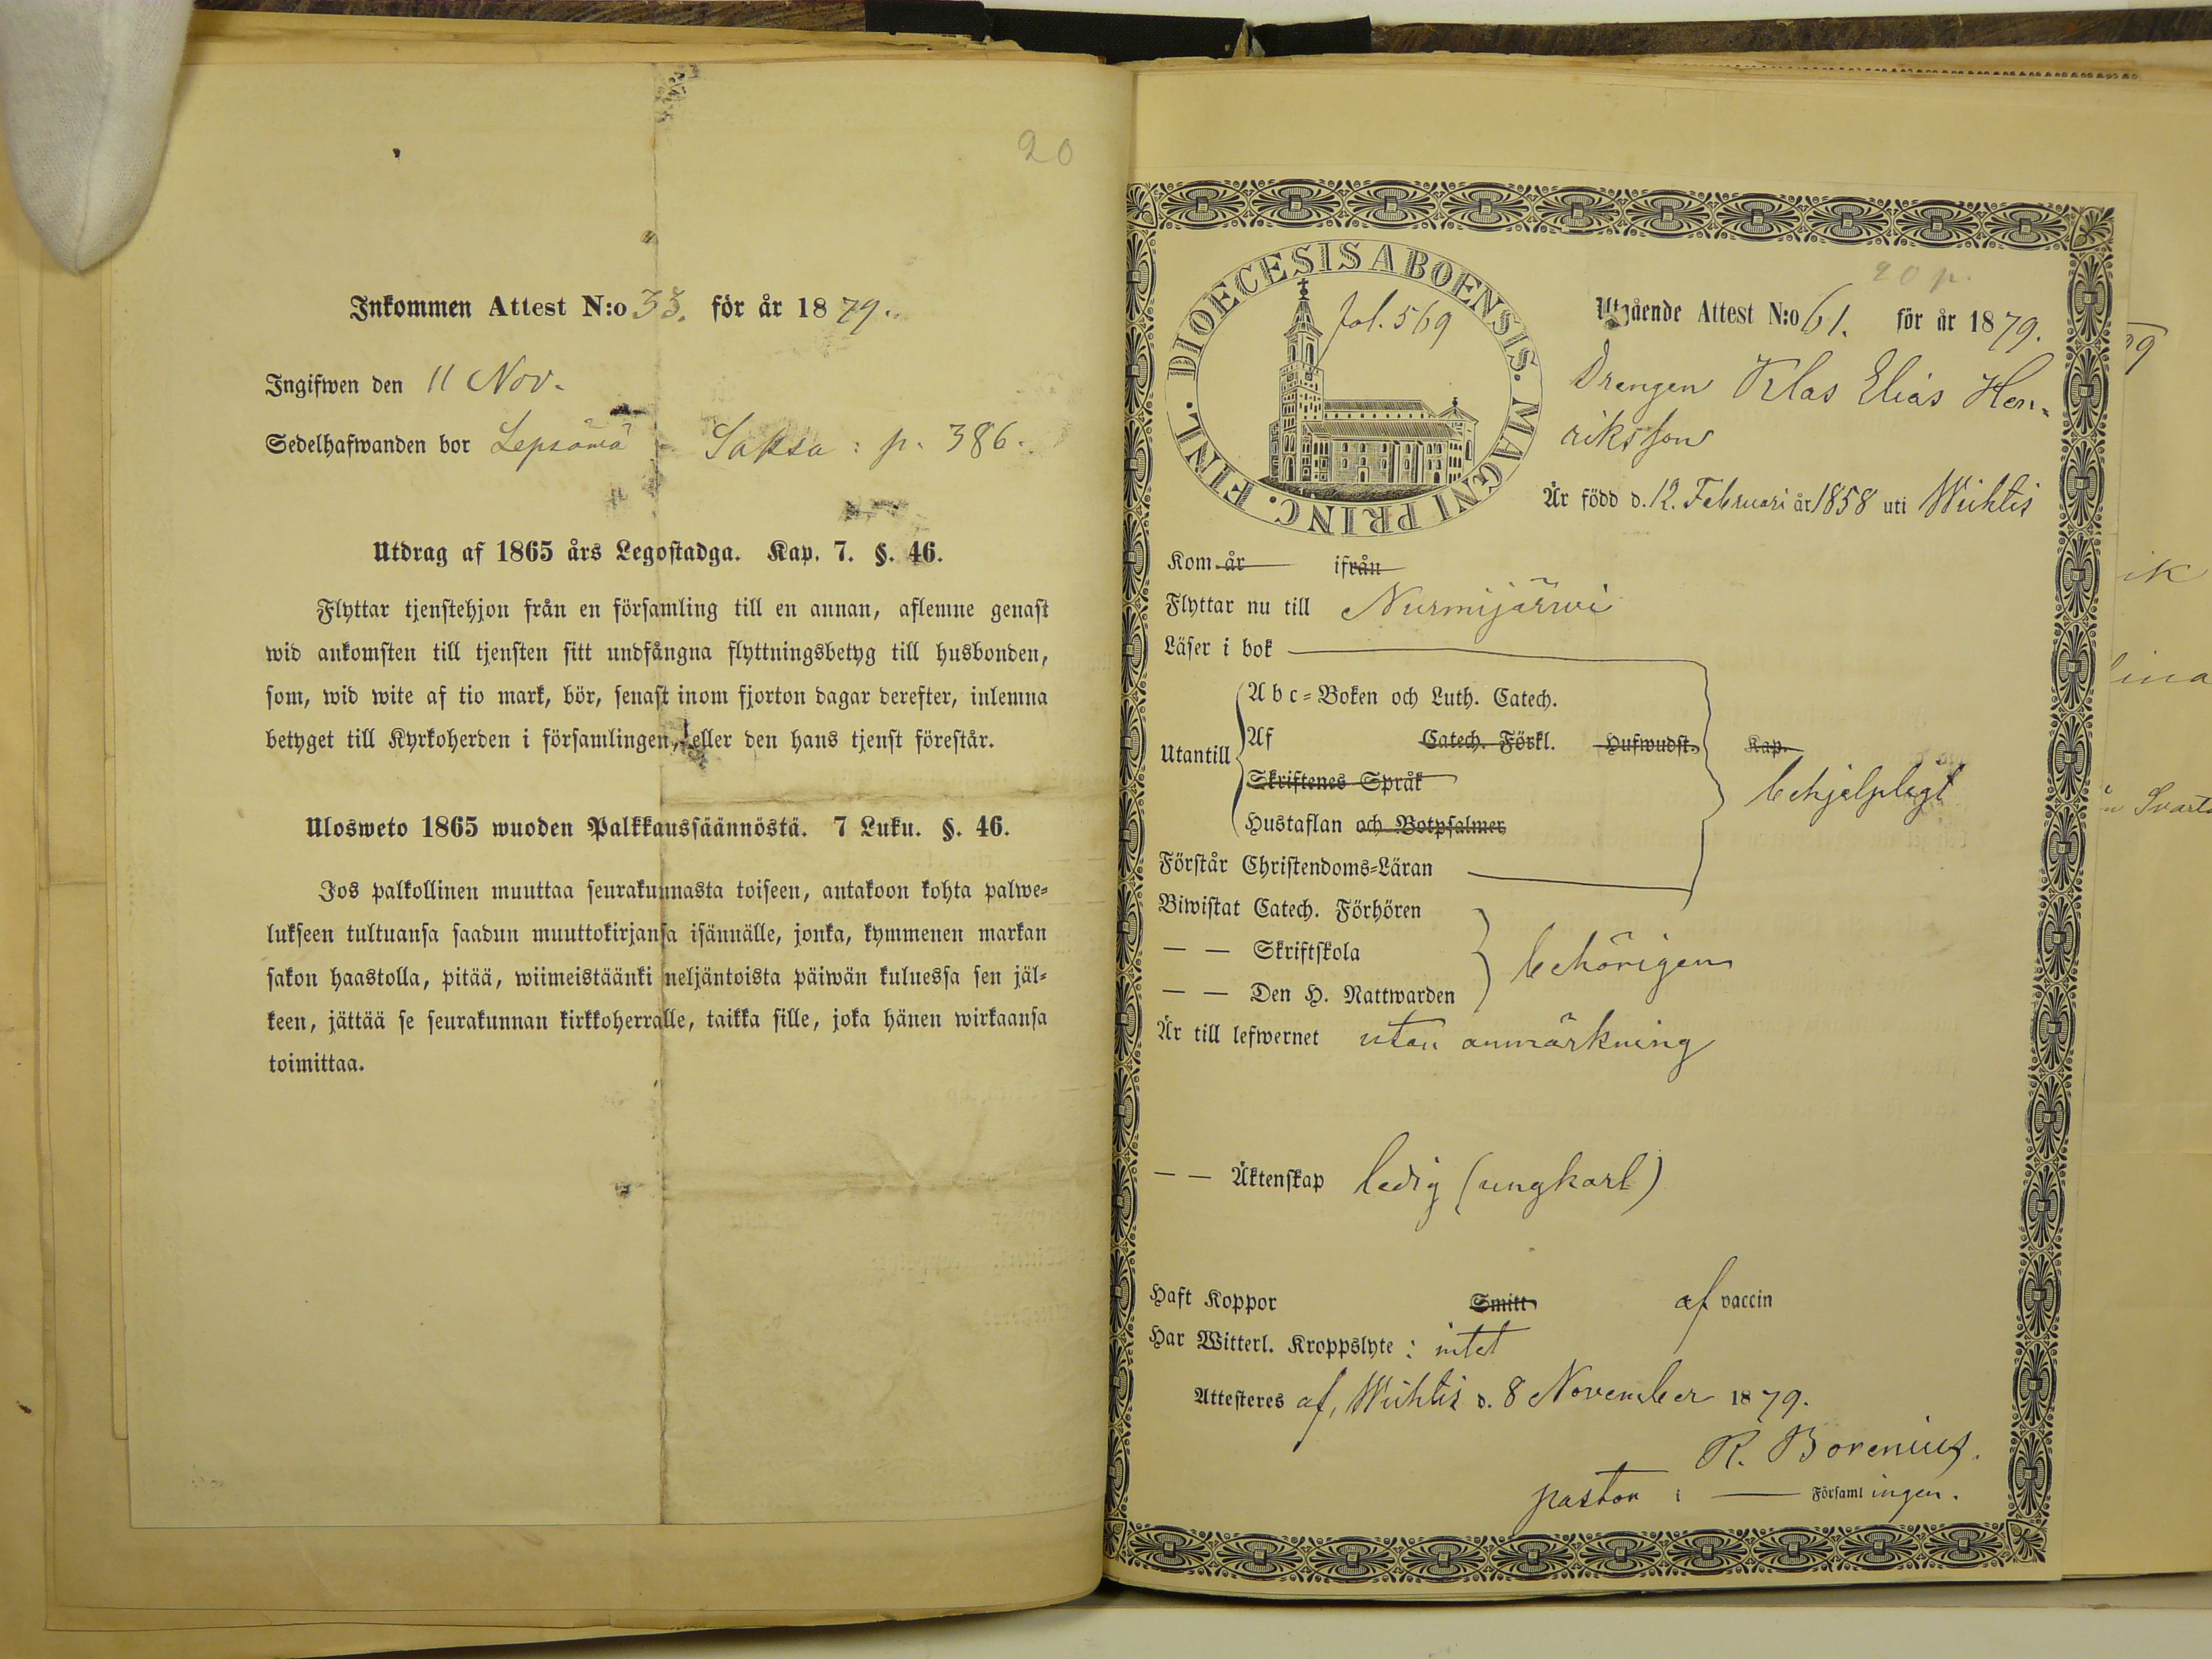 20
Inkommen Attest N:o 33. för år 1879.
Ingifwen den 11 Nov.
Sedelhafwanden bor Lepsämä Saksa: p. 386.
Utdrag af 1865 års Legostadga. Kap. 7. §. 46.
Flyttar tjenstehjon från en församling till en annan, aflemne genast
wid ankomsten till tjensten sitt undfångna flyttningsbetyg till husbonden,
som, wid wite af tio mark, bör, senast inom fjorton dagar derefter, inlemna
betyget till Kyrkoherden i församlingen, eller den hans tjenst förestår.
Ulosweto 1865 wuoden Palkkaussäännöstä. 7 Luku. §. 46.
Jos palkollinen muuttaa seurakunnasta toiseen, antakoon kohta palwe=
lukseen tultuansa saadun muuttokirjansa isännälle, jonka, kymmenen markan
sakon haastolla, pitää, wiimeistäänki neljäntoista päiwän kuluessa sen jäl=
keen, jättää se seurakunnan kirkkoherralle, taikka sille, joka hänen wirkaansa
toimittaa.
DIOECESIS ABOENSIS. MAGNI PRINC. FINL.
fol. 569
20 p.
Utgående Attest N:o 61. för år 1879.
Drengen Klas Elias Hen=
riksson
Är född d. 12. Februari år 1858 uti Wichtis
Kom år ifrån
Flyttar nu till Nurmijärwi
Läser i bok
Abc=Boken och Luth. Catech.
Utantill Af Catech. Förkl. Hufwudst. Kap.
Skriftenes Språk
behjelpligt
Hustaflan och Botpsalmer
Förstår Christendoms=Läran
Biwistat Catech. Förhören
— — Skriftskola
behörigen
— — Den H. Nattwarden
Är till lefwernet utan anmärkning
— — Äktenskap ledig (ungkarl)
Haft Koppor Smitt af vaccin
Har Witterl. Kroppslyte: intet
Attesteres af, Wichtis d. 8 November 1879.
R. Borenius.
pastor i — Församlingen.
79
ik
lina
Svart